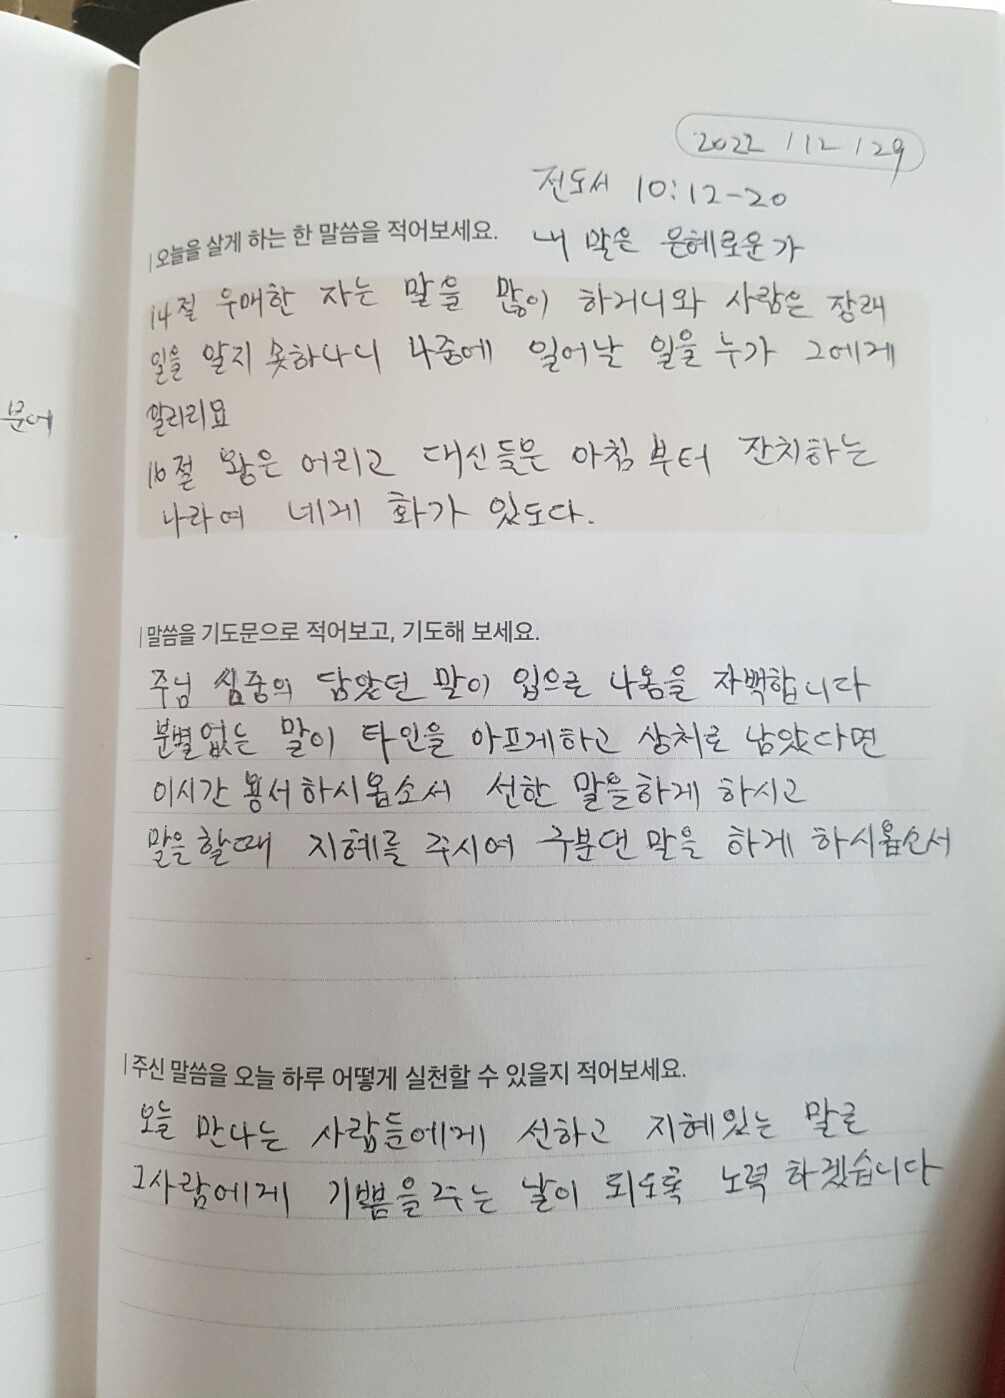 2022 / 12 / 29
전도서 10:12-20
| 오늘을 살게 하는 한 말씀을 적어보세요.
내 말은 은혜로운가
14절 우매한 자는 말을 많이 하거니와 사람은 장래
일을 알지 못하나니 나중에 일어날 일을 누가 그에게
알리리요
16절 왕은 어리고 대신들은 아침부터 잔치하는
나라여 네게 화가 있도다.
| 말씀을 기도문으로 적어보고, 기도해 보세요.
주님 심중의 담았던 말이 입으로 나옴을 자백합니다
분별없는 말이 타인을 아프게하고 상처로 남았다면
이시간 용서하시옵소서 선한 말을하게 하시고
말을할때 지혜를 주시여 구분댄 말을 하게 하시옵소서
| 주신 말씀을 오늘 하루 어떻게 실천할 수 있을지 적어보세요.
오늘 만나는 사람들에게 선하고 지혜있는 말로
그사람에게 기쁨을 주는 날이 되도록 노력 하겠습니다
문에